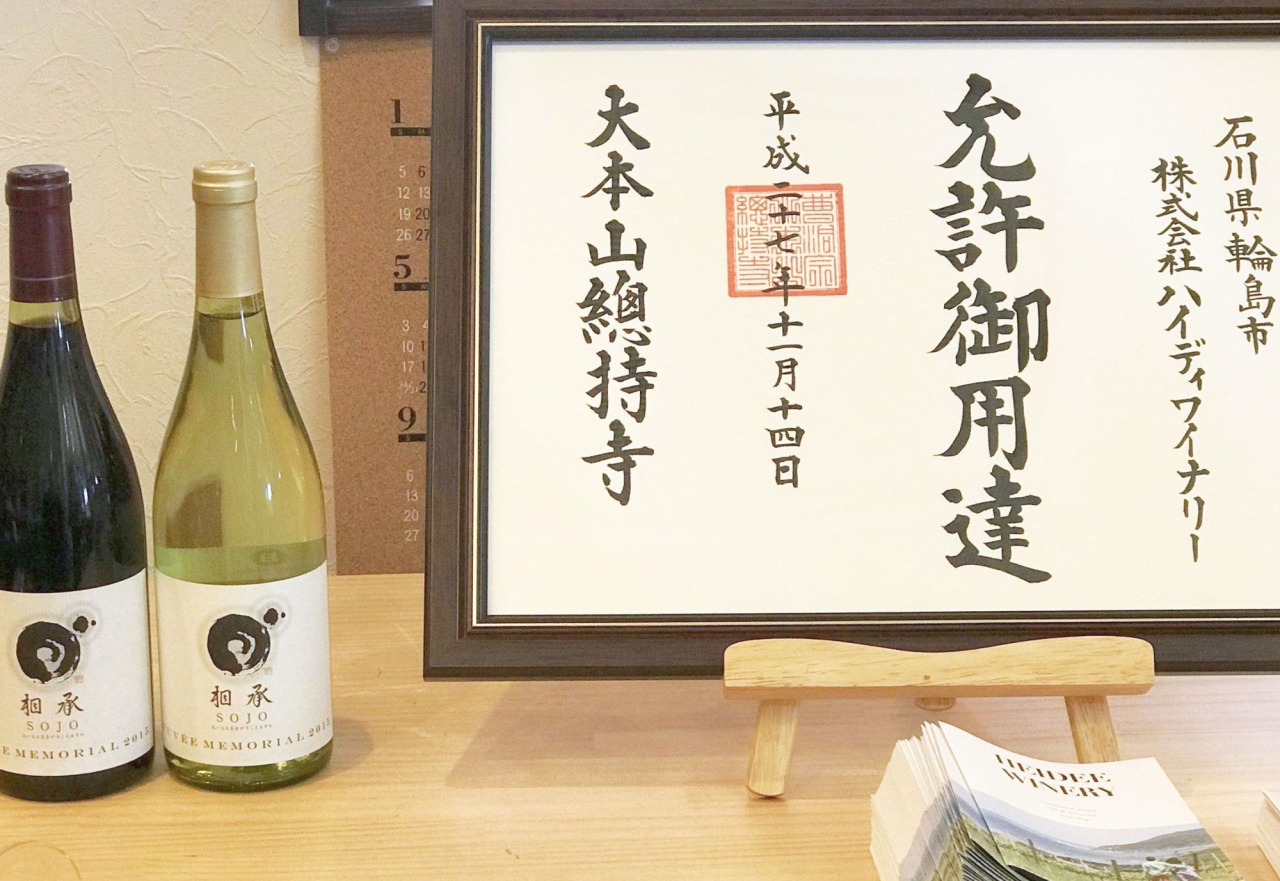 石川県輪島市
株式会社ハイディワイナリー
允許御用達
平成二十七年十一月十四日
大本山總持寺
相承
SOJO
E MEMORIAL 2015
相承
SOJO
CUVÉE MEMORIAL 2015
1
S M
5 6
12 13
19 20
26 27
5
S
3 4
10 1
17 1
9
S
6
13
20
27
HEIDEE
WINERY